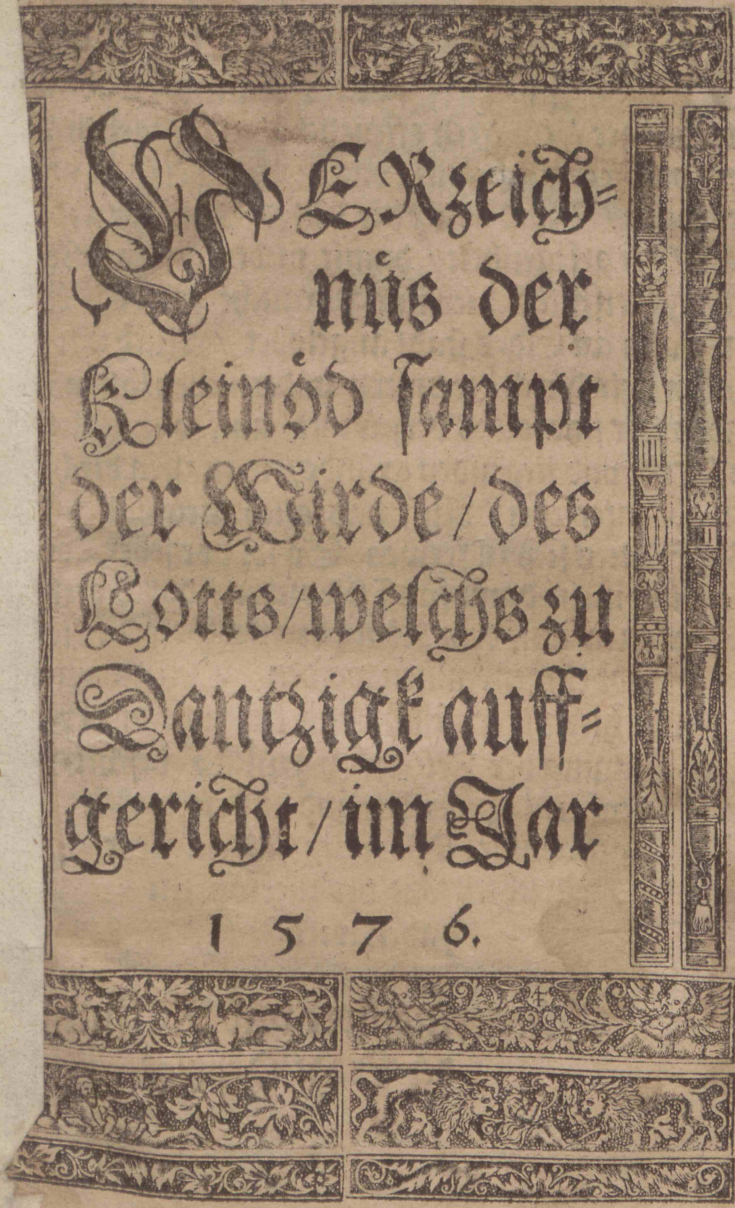 VERzeich⸗
nüs der
Kleinöd ſampt
der Wirde/des
Lotts/welchs zu
Dantzigk auff⸗
gericht/im Jar
1576.